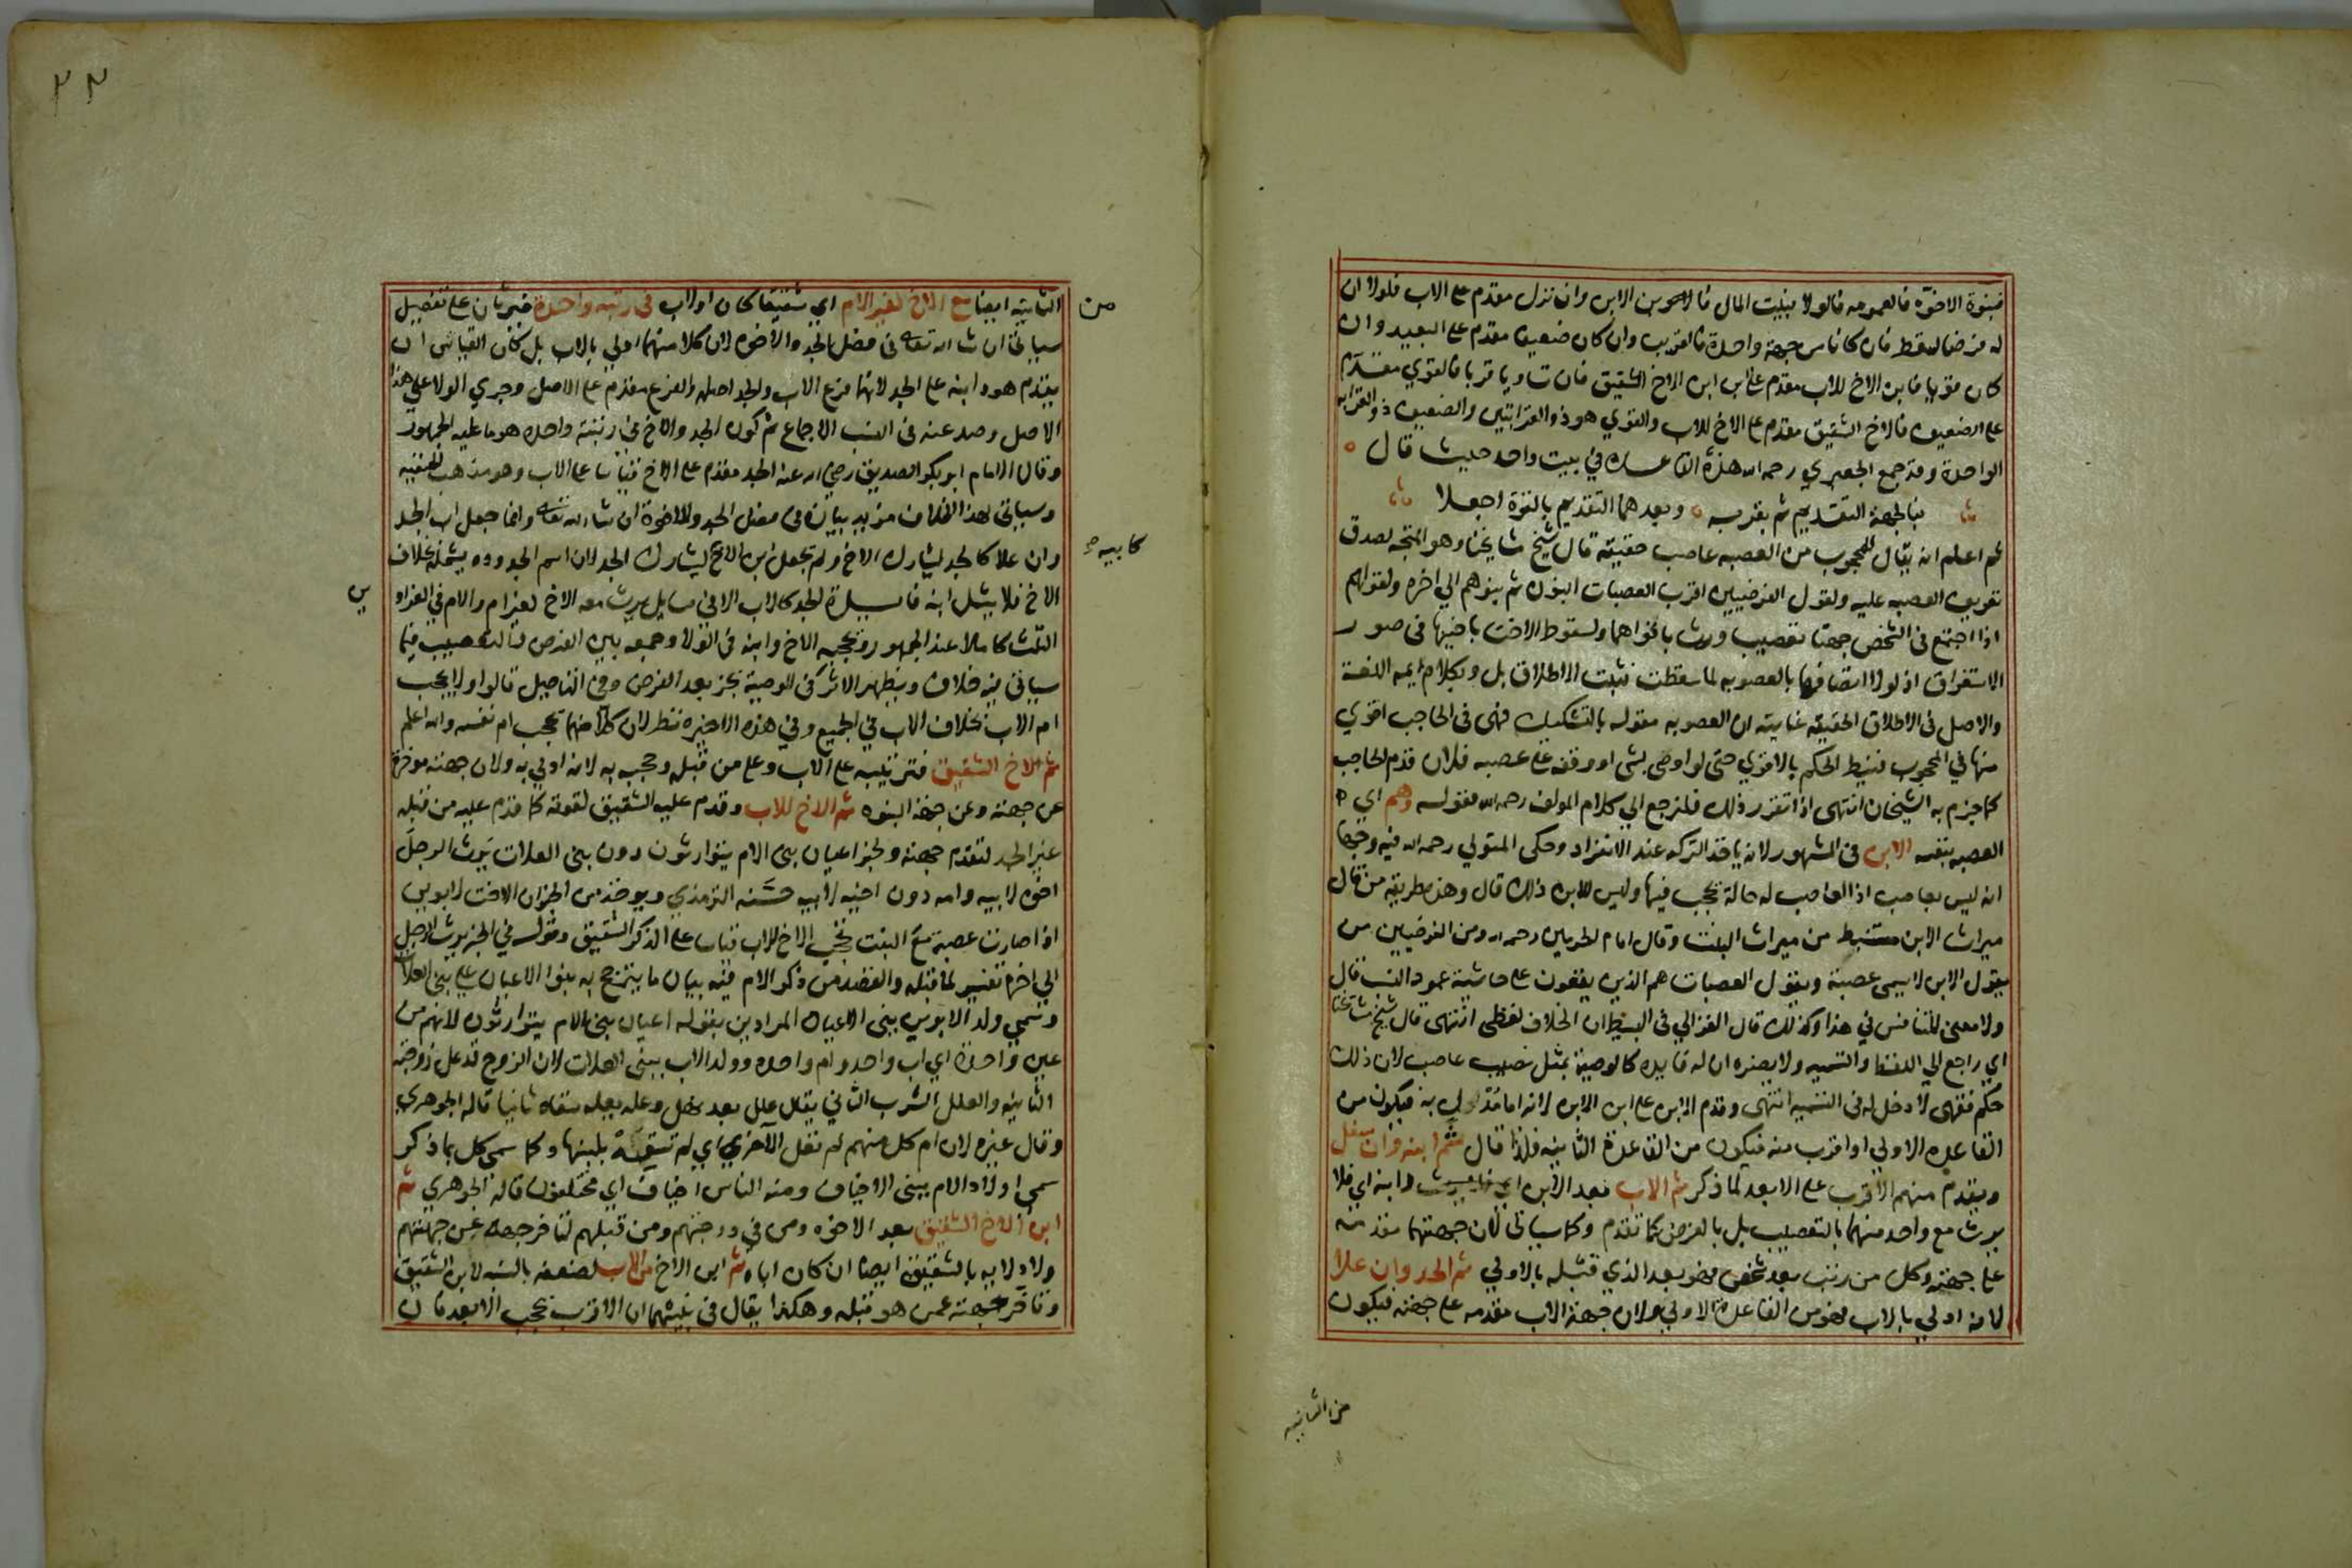 فبنوة الاخوة فالعمومه فالولا فبيت المال فالابن وابن الابن وان نزل مقدم على الاب فلولا ان
له فرضا لسقط فان كانا من جهة واحدة فالقريب وان كان ضعيفا مقدم على البعيد وان
كان قويا فابن الاخ للاب مقدم على ابن ابن الاخ الشقيق فان تساويا قربا فالقوي مقدم
على الضعيف فالاخ الشقيق مقدم على الاخ للاب والقوي هو ذو القرابتين والضعيف ذو القرابه
الواحدة وقد جمع الجعبري رحمه الله هذه القاعده في بيت واحد حيث قال
فبالجهة التقديم ثم بقربه وبعدهما التقديم بالقوة اجعلا
ثم اعلم انه يقال للمحجوب من العصبه عاصب حقيقة قال شيخ مشايخنا وهو المتجه لصدق
تعريف العصبه عليه ولقول الفرضيين اقرب العصبات البنون ثم بنوهم الي اخره ولقولهم
اذا اجتمع في الشخص جهتا تعصيب ورث باقواهما ولسقوط الاخت باخيها في صور
الاستغراق اذ لولا اتصافها بالعصوبه لما سقطت فثبت الاطلاق بل وبكلام ايمه اللغة
والاصل في الاطلاق الحقيقة غايته ان العصوبه مقوله بالتشكيك فهي في الحاجب اقوي
منها في المحجوب فنيط الحكم بالاقوي حتى لو اوصى بشي او وقفه على عصبه فلان قدم الحاجب
كما جزم به الشيخان انتهى اذا تقرر ذلك فلنرجع الي كلام المولف رحمه الله فقوله وهم اي
العصبه بنفسه الابن في المشهور لانه ياخذ التركه عند الانفراد وحكى المتولي رحمه الله فيه وجها
انه ليس بعاصب اذ العاصب له حالة يحجب فيها وليس للابن ذلك قال وهذه طريقة من قال
ميراث الابن مستنبط من ميراث البنت وقال امام الحرمين رحمه الله ومن الفرضيين من
يقول الابن لا يسمى عصبة ويقول العصبات هم الذين يقعون على حاشية عمود النسب قال
ولا معنى للتنافس في هذا وكذلك قال الغزالي في البسيط ان الخلاف لفظي انتهى قال شيخ مشايخنا
اي راجع الي اللفظ والتسميه ولا يضره ان له فايده كالوصية بمثل نصيب عاصب لان ذلك
حكم فقهي لا دخل له في التسميه انتهى وقدم الابن على ابن الابن لانه اما مدلي به فيكون من
القاعده الاولي او اقرب منه فيكون من القاعدة الثانيه فلذا قال ثم ابنه وان سفل
ويقدم منهم الاقرب على الابعد لما ذكر ثم الاب فبعد الابن وابنه اي فلا
يرث مع واحد منهما بالتعصيب بل بالفرض كما تقدم وكما سياتي لان جهتهما مقدمه
على جهته وكل من رتب بعد شخص فهو بعد الذي قبله بالاولي ثم الجد وان علا
لانه ادلي بالاب فهو من القاعدة الاولي ولان جهة الاب مقدمه على جهته فيكون
من الثانيه
٢٣
الثانيه ايضا مع الاخ لغير الام اي شقيقا كان او لاب في رتبه واحدة فيرثان على تفصيل
من
سياتي ان شا الله تعالى في فصل الجد والاخوه لان كلا منهما ادلي بالاب بل كان القياس ان
يقدم هو وابنه على الجد لانهما فرع الاب والجد اصله والفرع مقدم على الاصل وجري الولا على هذا
الاصل وصد عنه في النسب الاجماع ثم كون الجد والاخ في رتبة واحده هو ما عليه الجمهور
وقال الامام ابو بكر الصديق رضي الله عنه الجد مقدم على الاخ قياسا على الاب وهو مذهب الحنفيه
وسياتي لهذا الخلاف مزيد بيان في فصل الجد والاخوة ان شا الله تعالى وانما جعل اب الجد
وان علا كالجد يشارك الاخ ولم يجعل ابن الاخ يشارك الجد لان اسم الجدوده يشمله بخلاف
كابيه
الاخ فلا يشمل ابنه الجد كالاب الا في مسايل يرث معه الاخ لغير ام والام في الغراو
ين
الثلث كاملا عند الجمهور ويحجبه الاخ وابنه في الولا وجمعه بين الفرض والتعصيب فيما
سياتي فيه خلاف ويظهر الاثر في الوصية بجز بعد الفرض وفي التاصيل قالوا ولا يحجب
ام الاب بخلاف الاب في الجميع وفي هذه الاخيره نظر لان كلا منهما يحجب ام نفسه والله اعلم
ثم الاخ الشقيق فترتيبه على الاب وعلى من قبله وحجبه به لانه ادلي به ولان جهته موخرة
عن جهته وعن جهة البنوه ثم الاخ للاب وقدم عليه الشقيق لقوته كما قدم عليه من قبله
غير الجد لتقدم جهته ولخبر اعيان بني الام يتوارثون دون بني العلات يرث الرجل
اخوه لابيه وامه دون اخيه لابيه حسنه الترمذي ويوخذ من الخبر ان الاخت لابوين
اذا صارت عصبة مع البنت تحجب الاخ للاب قياسا على الذكر الشقيق وقوله في الخبر يرث الرجل
الي اخره تفسير لما قبله والقصد من ذكر الام فيه بيان ما يترجح به بنو الاعيان على بني العلات
وسمي ولد الابوين بني الاعيان المرادين بقوله اعيان بني الام يتوارثون لانهم من
عين واحدة اي اب واحد وام واحده وولد الاب ببني العلات لان الزوج قد عل زوجته
الثانيه والعلل الشرب الثاني يقال علل بعد نهل وعله يعله سقاه ثانيا قاله الجوهري
وقال غيره لان ام كل منهم لم تعل الآخر اي لم تسقه بلبنها وكما سمي كل بما ذكر
سمي اولاد الام ببني الاخياف ومنه الناس اخياف اي مختلفون قاله الجوهري ثم
ابن الاخ الشقيق بعد الاخوه ومن في درجتهم ومن قبلهم لتاخر جهته عن جهتهم
ولادلايه بالشقيق ايضا ان كان اباه ثم ابن الاخ من الاب لضعفه بالنسبه لابن الشقيق
وتاخر جهته عمن هو قبله وهكذا يقال في بنيهما ان الاقرب يحجب الابعد فان